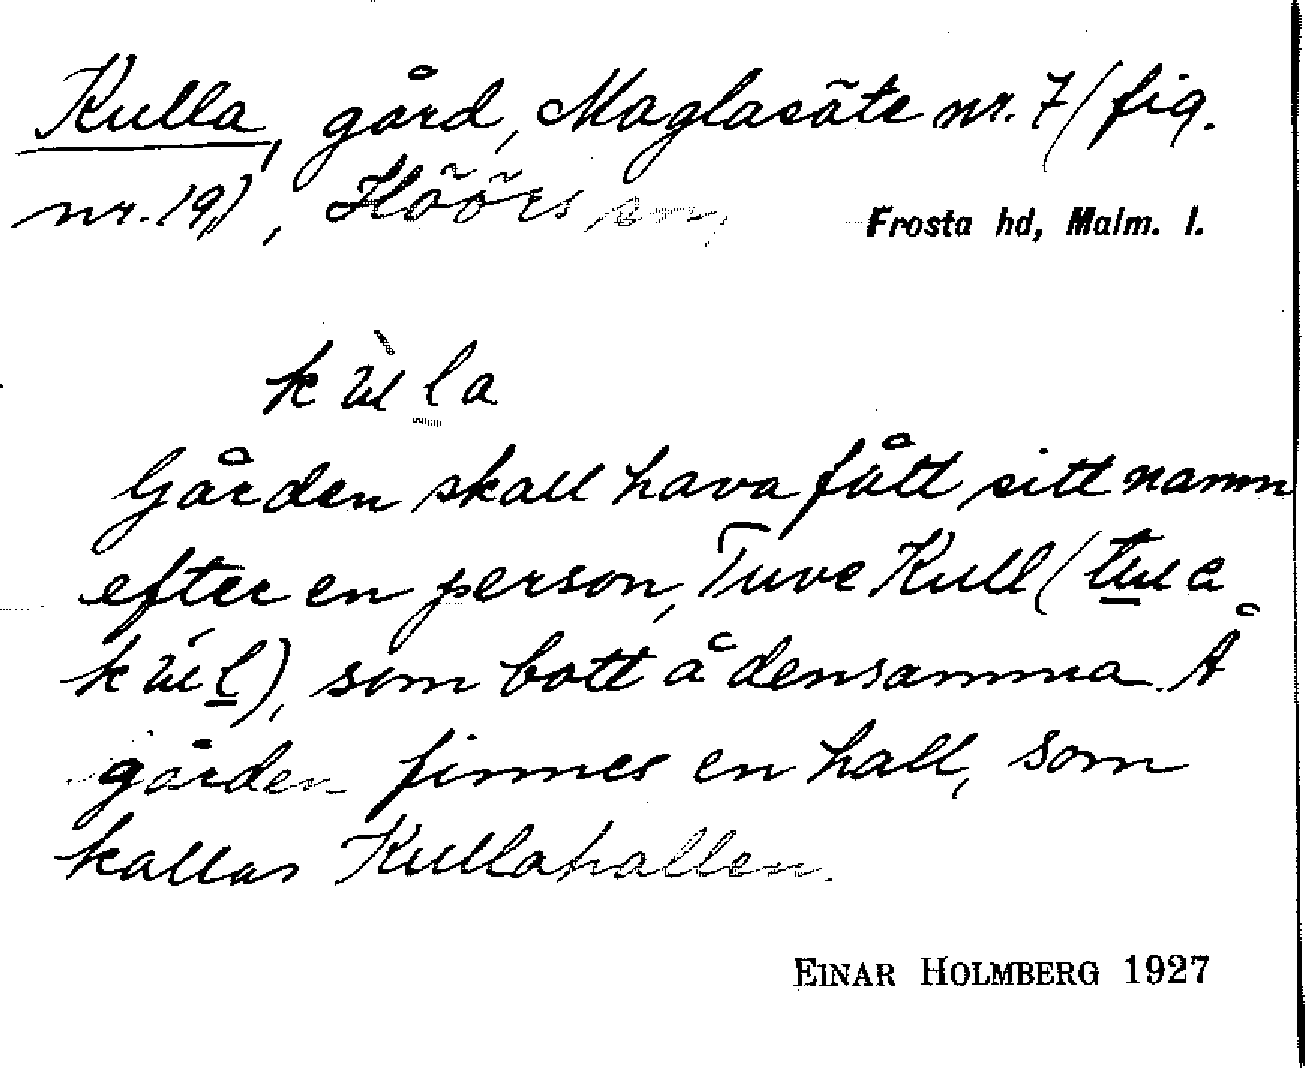 Kulla, gård, Maglasäte nr. 7 (fig.
nr. 19), Höörs sn, Frosta hd, Malm. l.
kùl̲a
Gården skall hava fått sitt namn
efter en person, Tuve Kull (
), som bott å densamma. Å
gården finnes en hall, som
kallas Kullahallen.
EINAR HOLMBERG 1927